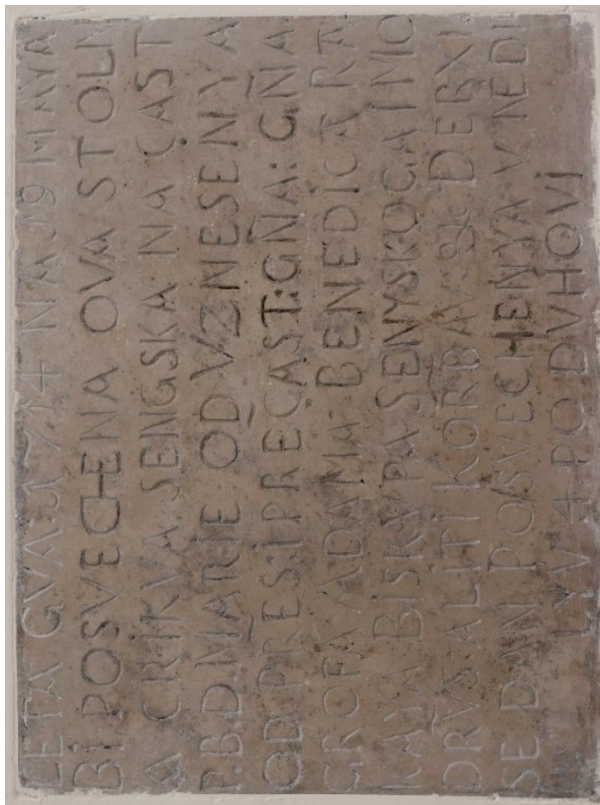 LETA GVA: 1714 NA 19 MAYA
BI POSVECHENA OVA STOLN
A CRIKVA SENGSKA NA CAST
P.B.D.MARIE OD VZNESENYA
OD PRES:I PRECAST:GÑA: GÑA
GROFA ADAMA: BENEDICA RAT
KAYA BISKVPA SENYSKOGA IMO
DRVS ALITI KORBAVSK: DERXI
SE DAN POSVECHENYA V NEDI
LYV 4 PO DVHOVI